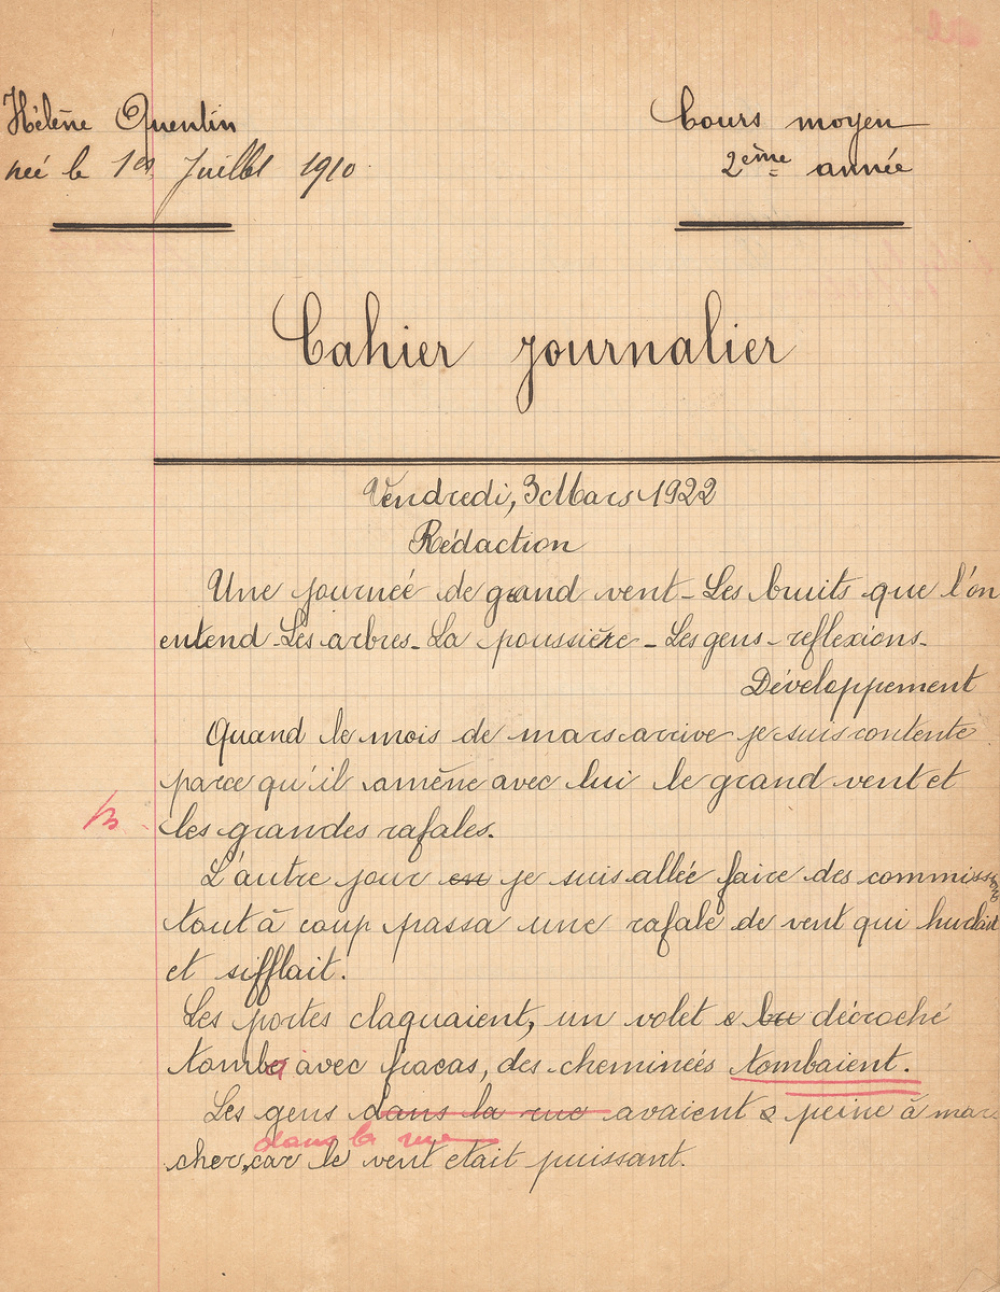 Hélène Quentin
Cours moyen
née le 1er Juillet 1910
2ème année
Cahier journalier
Vendredi, 3 Mars 1922
Rédaction
Une journée de grand vent - Les bruits que l'on
entend - Les arbres - La poussière - Les gens - reflexions -
Développement
Quand le mois de mars arrive je suis contente
parce qu'il amène avec lui le grand vent et
les grandes rafales.
L'autre jour en je suis allée faire des commiss
tout à coup passa une rafale de vent qui hurlait
et sifflait.
Les portes claquaient, un volet décroché
tomba avec fracas, des cheminées tombaient.
Les gens dans la rue avaient peine à mar
dans la rue
cher, car le vent etait puissant.